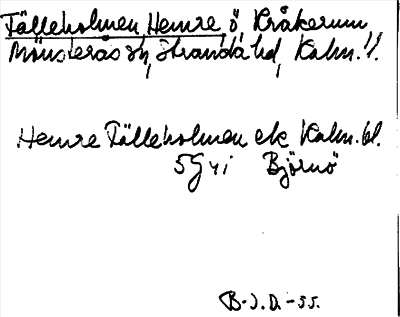 Fälleholmen, Hemre, ö, Kråkerum,
Mönsterås sn, Stranda hd, Kalm. ll.
Hemre Fälleholmen ek Kalm. bl.
5G4i Björnö
B-J. D. -55.